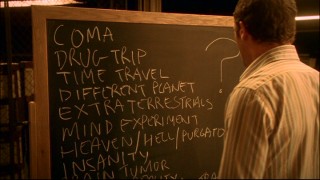 COMA
?
DRUG-TRIP
TIME TRAVEL
DIFFERENT PLANET
EXTRATERRESTRIALS
MIND EXPERIMENT
HEAVEN/HELL/PURGATO
INSANITY
TUMOR